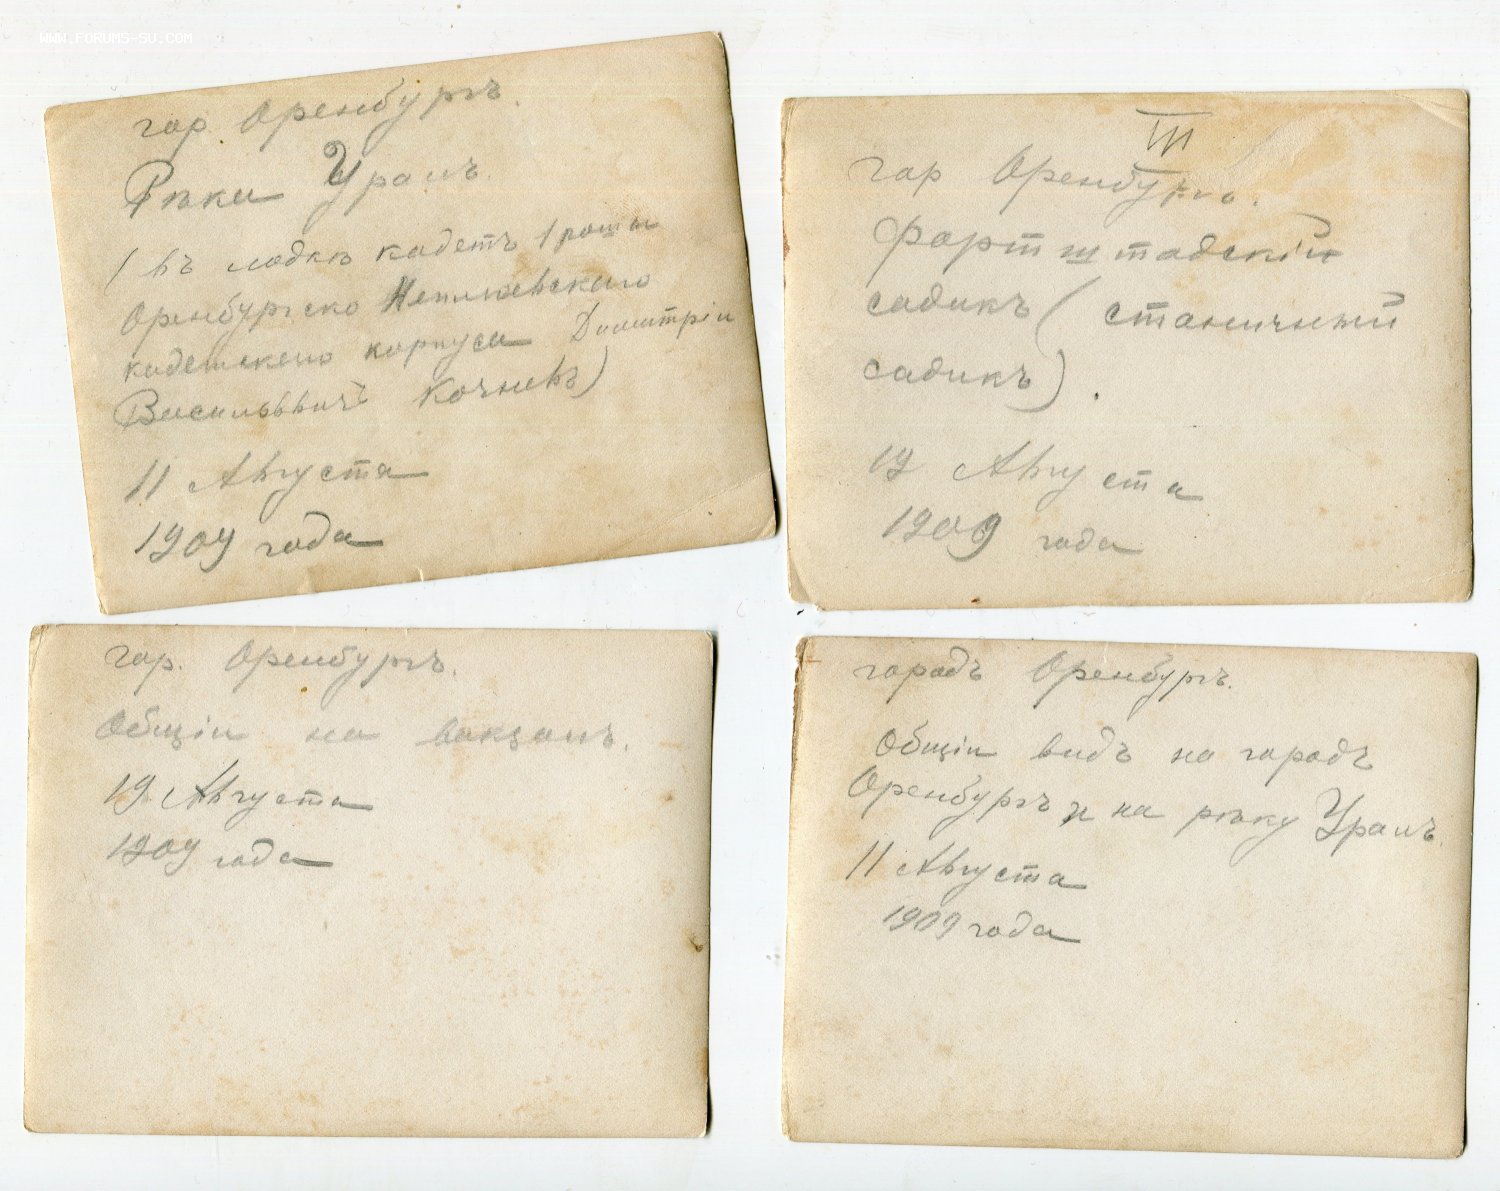 WWW.FORUMS-SU.COM
гор. Оренбургъ.
Рѣка Уралъ.
(въ лодкѣ кадетъ 1 роты
Оренбургско Неплюевскаго
кадетскаго корпуса Димитрiи
Васильввичъ Кочневъ)
11 Августа
1909 года
III
гор Оренбургъ.
Фортштадскiй
садикъ (станичный
садикъ).
Августа
1909 года
гор. Оренбургъ.
Общiи на вакзалъ.
19 Августа
1909 года
городъ Оренбургъ.
Общiи видъ на городъ
Оренбургъ и на рѣку Уралъ.
11 Августа
1909 года